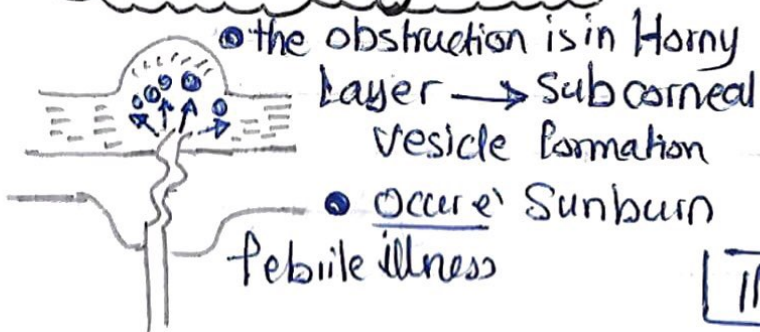 the obstruction is in Horny
Layer → Subcorneal
vesicle formation
Occur e` Sunburn
febrile illness